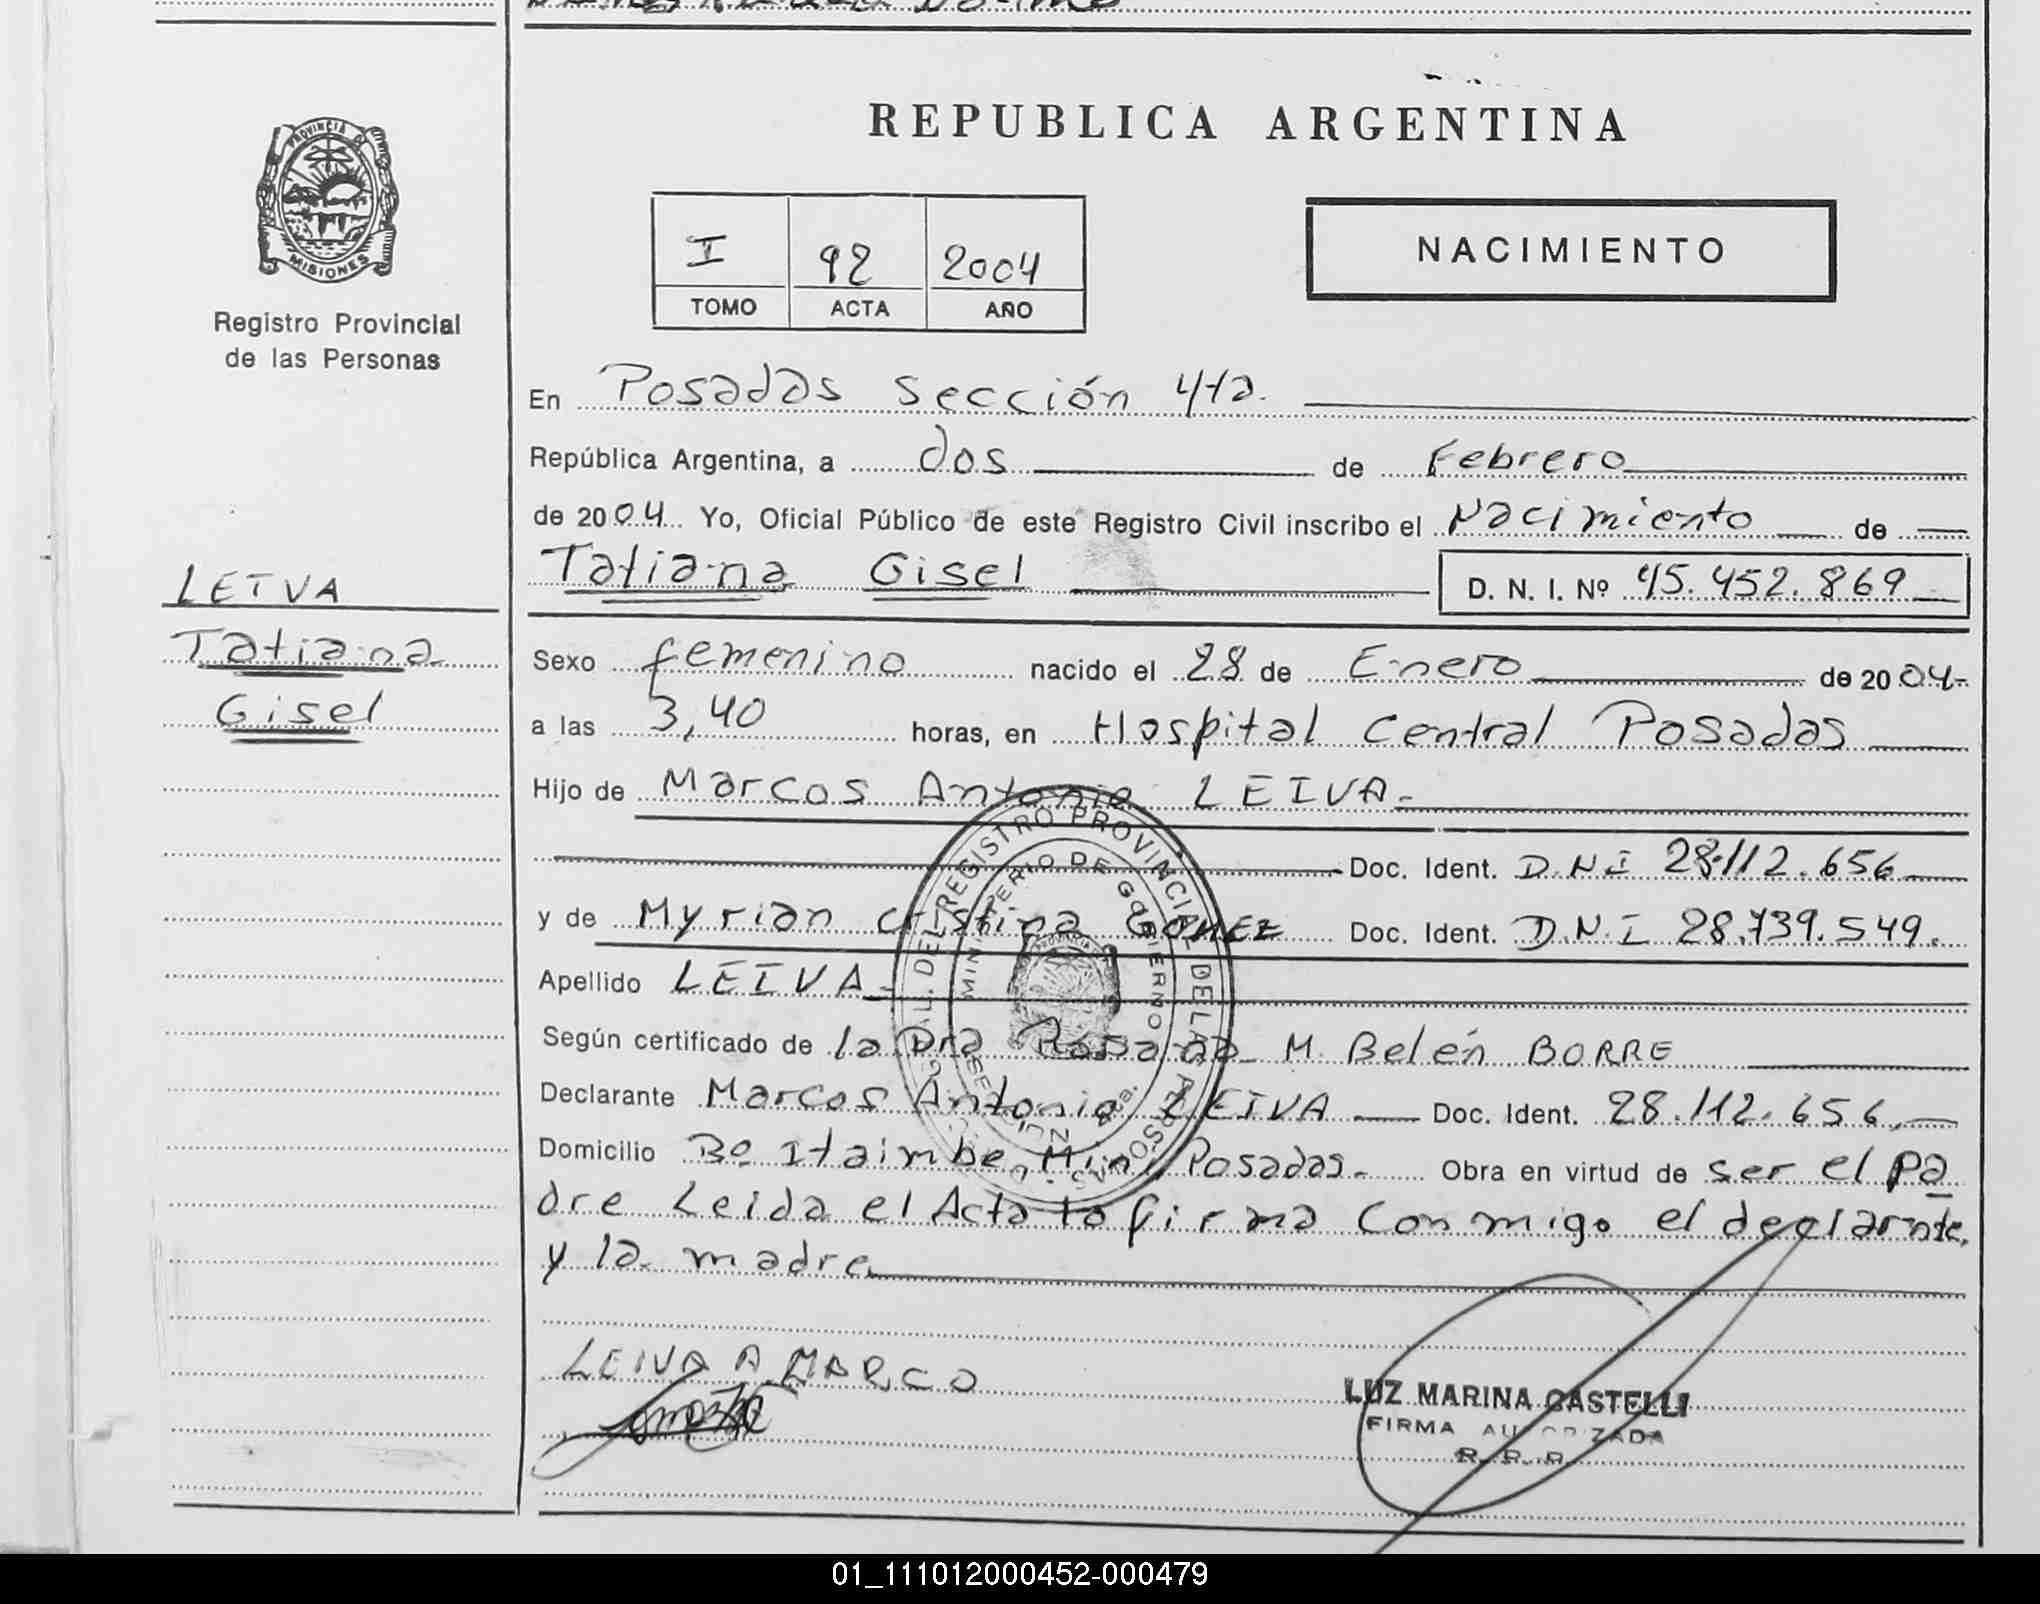 REPUBLICA ARGENTINA
PROVINCIA D
MISIONES
Registro Provincial
de las Personas
I 92 2004
TOMO ACTA AÑO
NACIMIENTO
En Posadas Sección 4ta.
República Argentina, a dos de Febrero
de 2004 Yo, Oficial Público de este Registro Civil inscribo el Nacimiento de
Tatiana Gisel D. N. I. Nº 45.452.869
LEIVA
Tatiana
Gisel
Sexo femenino nacido el 28 de Enero de 2004-
a las 3,40 horas, en Hospital Central Posadas
Hijo de Marcos Antonio LEIVA-
Doc. Ident. D.N.I 28.112.656
y de Myrian Cristina GOMEZ Doc. Ident. D.N.I 28.739.549.
Apellido LEIVA-
Según certificado de la Dra Rosana M. Belén BORRE
Declarante Marcos Antonio LEIVA Doc. Ident. 28.112.656,
Domicilio Bº Itaimbe Mini Posadas- Obra en virtud de ser el pa
dre Leida el Acta la firma conmigo el declarante,
y la madre
LEIVA A MARCO
LUZ MARINA CASTELLI
FIRMA AUTORIZADA
R.P.P.
DEL REGISTRO PROVINCIAL DE LAS PERSONAS
MINISTERIO DE GOBIERNO
01_111012000452-000479